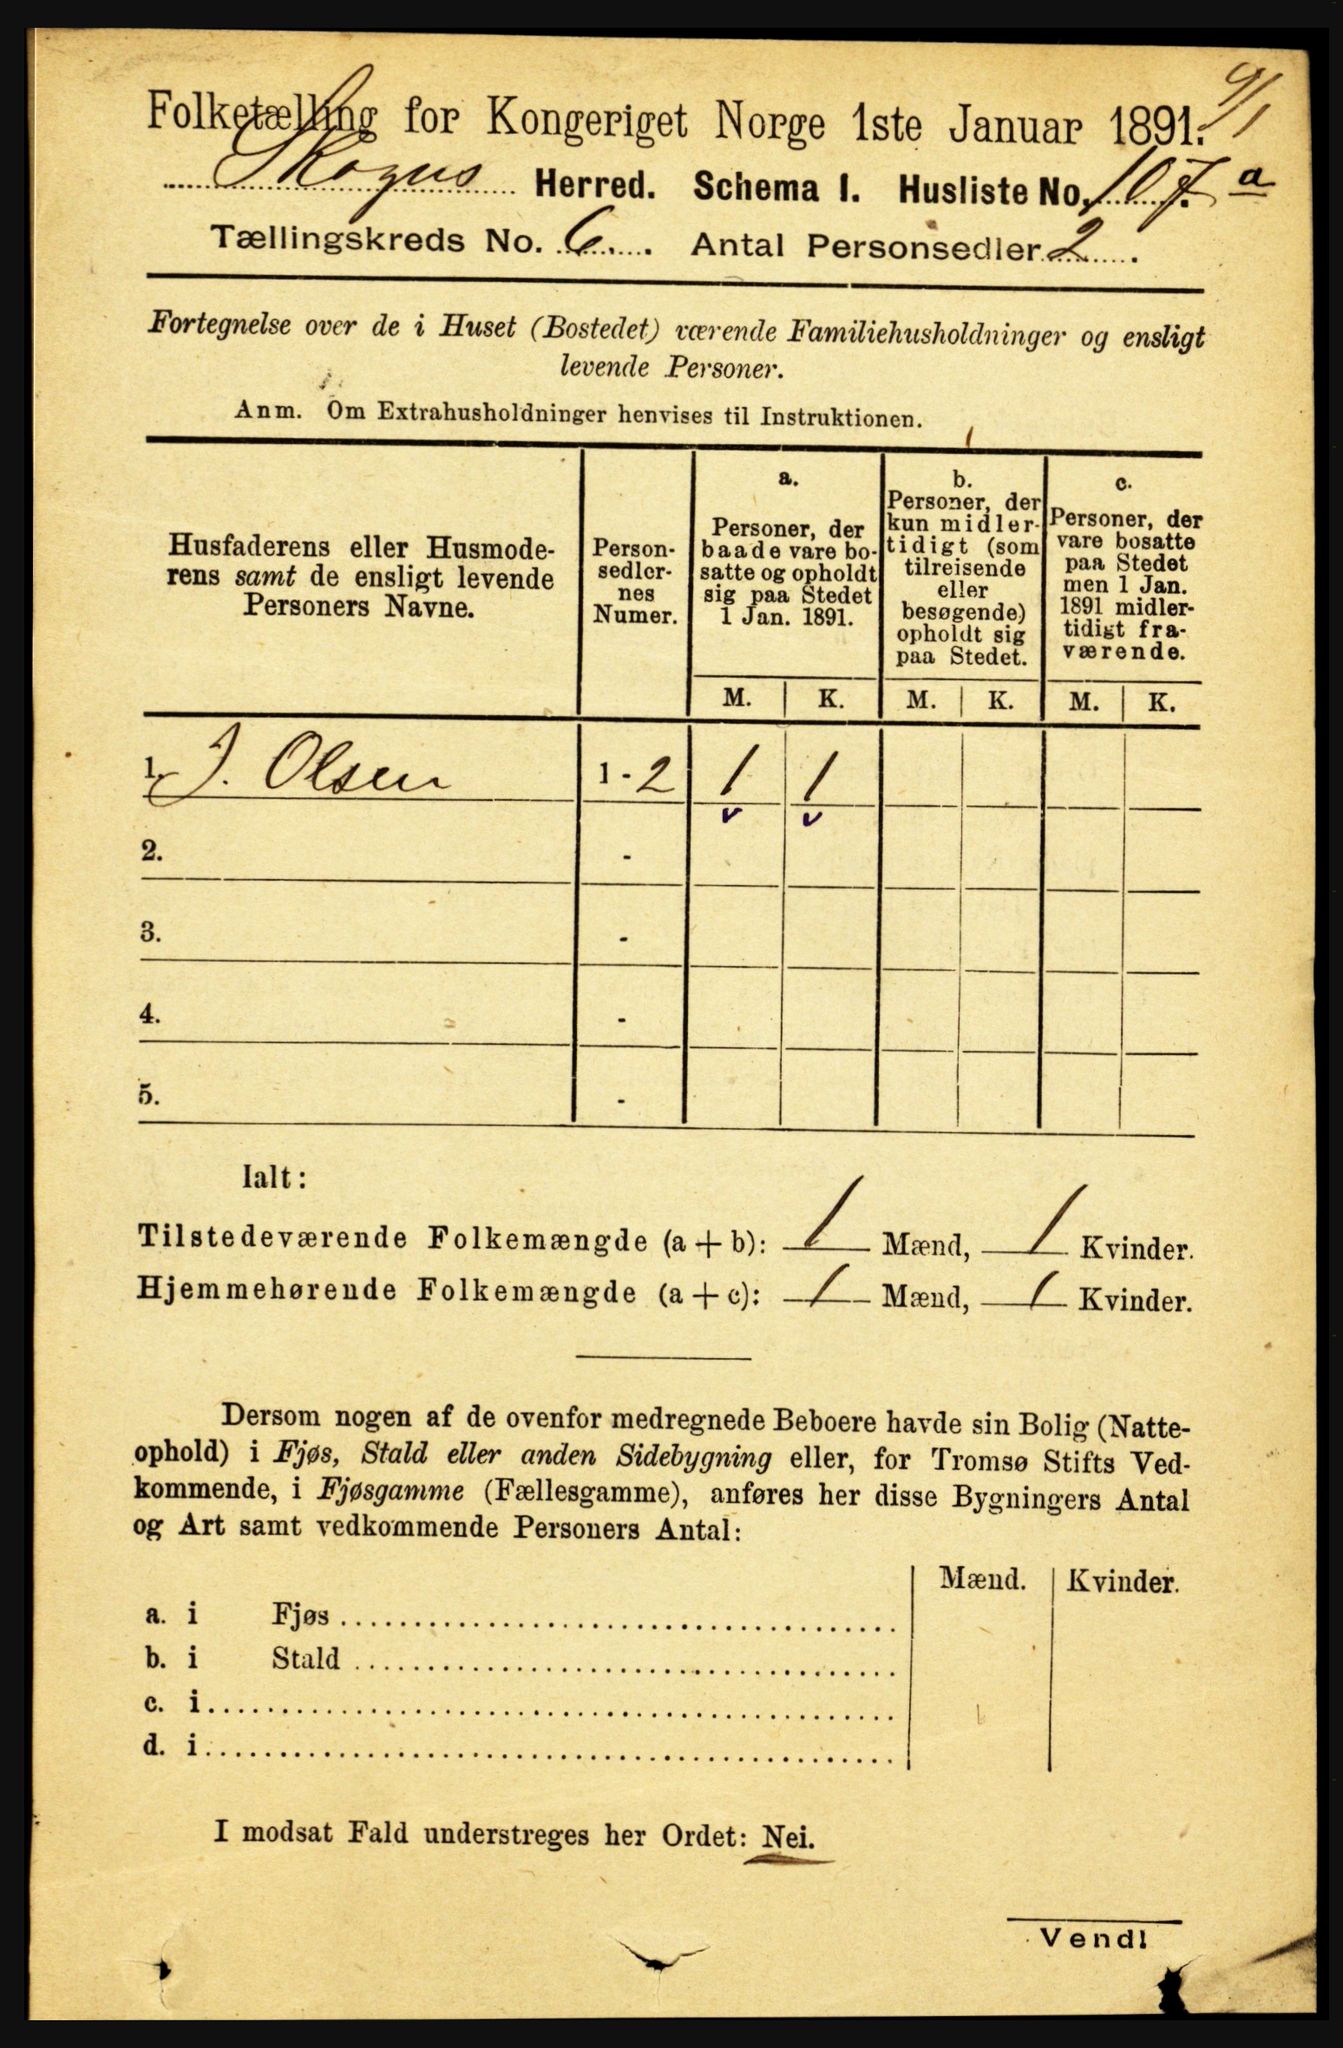 Folketælling for Kongeriget Norge 1ste Januar 1891. 9/1
Skogns Herred. Schema I. Husliste No. 107. a
Tællingskreds No. 6. Antal Personsedler 2.
Fortegnelse over de i Huset (Bostedet) værende Familiehusholdninger og ensligt
levende Personer.
Anm. Om Extrahusholdninger henvises til Instruktionen.
Husfaderens eller Husmode-
rens samt de ensligt levende
Personers Navne.
Person-
sedler-
nes
Numer.
a.
Personer, der
baade vare bo-
satte og opholdt
sig paa Stedet
1 Jan. 1891.
b.
Personer, der
kun midler-
tidigt (som
tilreisende
eller
besøgende)
opholdt sig
paa Stedet.
c.
Personer, der
vare bosatte
paa Stedet
men 1 Jan.
1891 midler-
tidigt fra-
værende.
M. K. M. K. M. K.
1. J. Olsen 1 - 2 1 1
2. -
3. -
4. -
5. -
Ialt:
Tilstedeværende Folkemængde (a + b): 1 Mænd, 1 Kvinder.
Hjemmehørende Folkemængde (a + c): 1 Mænd, 1 Kvinder.
Dersom nogen af de ovenfor medregnede Beboere havde sin Bolig (Natte-
ophold) i Fjøs, Stald eller anden Sidebygning eller, for Tromsø Stifts Ved-
kommende, i Fjøsgamme (Fællesgamme), anføres her disse Bygningers Antal
og Art samt vedkommende Personers Antal:
Mænd. Kvinder.
a. i Fjøs
b. i Stald
c. i
d. i
I modsat Fald understreges her Ordet: Nei.
Vend!